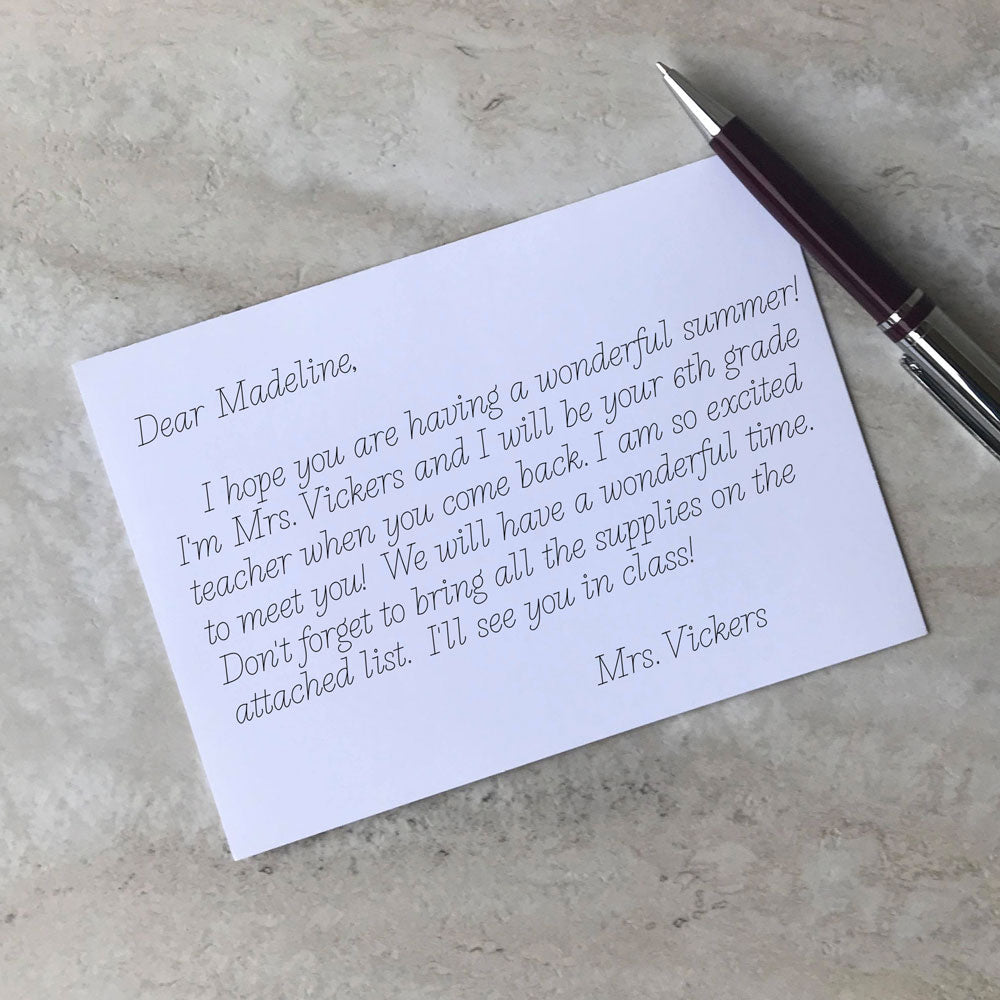 Dear Madeline,
I hope you are having a wonderful summer!
I'm Mrs. Vickers and I will be your 6th grade
teacher when you come back. I am so excited
to meet you! We will have a wonderful time.
Don't forget to bring all the supplies on the
attached list. I'll see you in class!
Mrs. Vickers